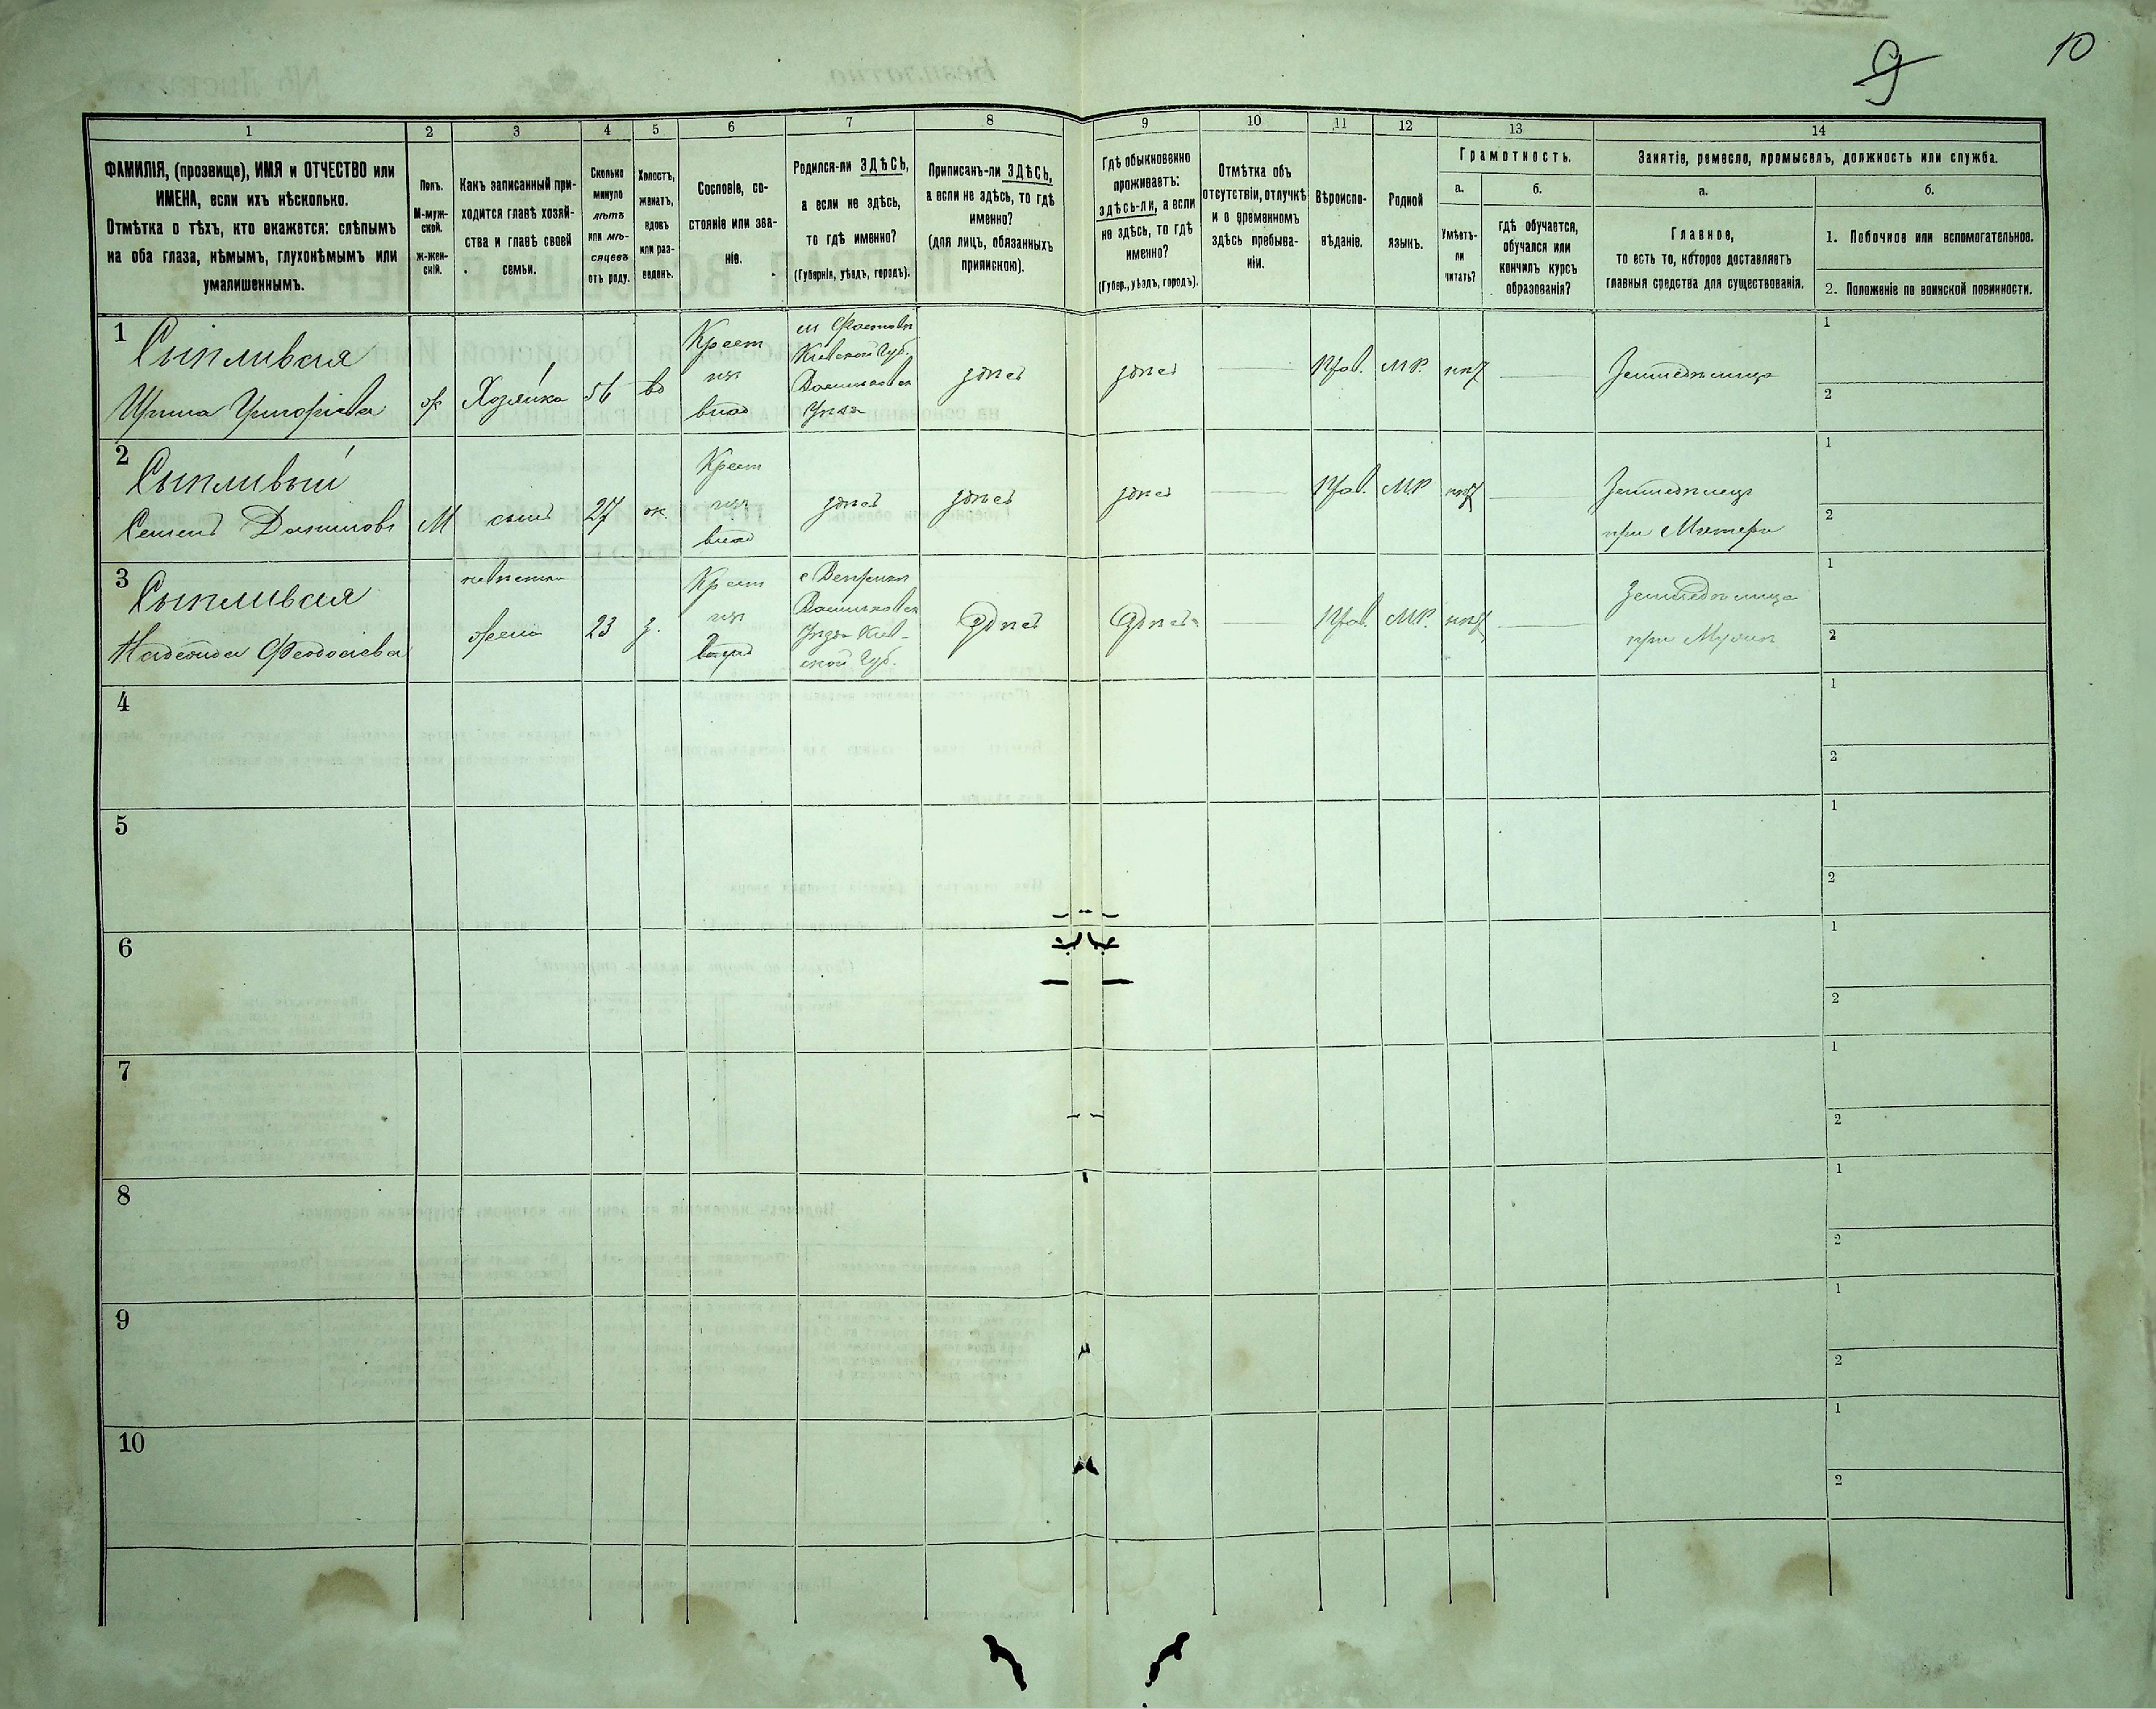 9 10
1
2
3
4
5
6
7
8
9
10
11
12
13
14
ФАМИЛІЯ, (прозвище), ИМЯ и ОТЧЕСТВО или
ИМЕНА, если ихъ нѣсколько.
Отмѣтка о тѣхъ, кто окажется: слѣпымъ
на оба глаза, нѣмымъ, глухонѣмымъ или
умалишеннымъ.
Полъ.
М-муж-
ской.
ж-жен-
скій.
Какъ записанный при-
ходится главѣ хозяй-
ства и главѣ своей
семьи.
Сколько
минуло
лѣтъ
или мѣ-
сяцевъ
отъ роду.
Холостъ,
женатъ,
вдовъ
или раз-
веденъ.
Сословіе, со-
стояніе или зва-
ніе.
Родился-ли ЗДѢСЬ,
а если не здѣсь,
то гдѣ именно?
(Губернія, уѣздъ, городъ).
Приписанъ-ли ЗДѢСЬ,
а если не здѣсь, то гдѣ
именно?
(для лицъ, обязанныхъ
припискою).
Гдѣ обыкновенно
проживаетъ:
здѣсь-ли, а если
не здѣсь, то гдѣ
именно?
(Губер., уѣздъ, городъ).
Отмѣтка объ
отсутствіи, отлучкѣ
и о временномъ
здѣсь пребыва-
ніи.
Вѣроиспо-
вѣданіе.
Родной
языкъ.
Грамотность.
а.
Умѣетъ-
ли
читать?
б.
гдѣ обучается,
обучался или
кончилъ курсъ
образованія?
Занятіе, ремесло, промыселъ, должность или служба.
а.
Главное,
то есть то, которое доставляетъ
главныя средства для существованія.
б.
1. Побочное или вспомогательное.
2. Положеніе по воинской повинности.
1
Сыпливая
Ирина Григоріева
ж
Хозяйка
56
вд
Крест
изъ
влад
м Фастовъ
Кіевской Губ.
Васильков
Уѣзда
здѣсь
здѣсь
Прав.
МР.
нѣт
Земледѣлица
1
2
2
Сыпливый
Семенъ Даниловъ
М
сынъ
27
ж.
Крест
изъ
влад
здѣсь
здѣсь
здѣсь
Прав.
МР
нѣт
Земледѣлецъ
при Матери
1
2
3
Сыпливая
Надежда Феодосіева
невѣстка
жена
23
з.
Крест
изъ
Васильков
Уѣзда Кіев-
ской Губ.
Здѣсь
Здѣсь
Прав.
МР.
нѣт
Земледѣлица
при Мужѣ
1
2
4
1
2
5
1
2
6
1
2
7
1
2
8
1
2
9
1
2
10
1
2